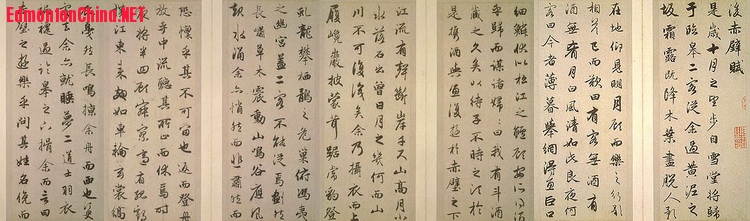 EdmontonChina.NET
後赤壁賦
是歲十月之望步自雪堂將歸
于臨皋二客從余過黃泥之
坂霜露既降木葉盡脫人影
在地仰見明月顧而樂之行歌
相答已而歎曰有客無酒有
酒無肴月白風清如此良夜何
客曰今者薄暮舉網得魚巨口
細鱗狀似松江之鱸顧安所得酒
乎歸而謀諸婦婦曰我有斗酒
藏之久矣以待子不時之需於
是攜酒與魚復遊於赤壁之下
江流有聲斷岸千尺山高月小
水落石出曾日月之幾何而江山
不可復識矣余乃攝衣而上
履巉巖披蒙茸踞虎豹登
虬龍攀栖鶻之危巢俯馮夷
之幽宮蓋二客不能從焉劃然
長嘯草木震動山鳴谷應風
起水涌余亦悄然而悲肅然而
恐凜乎其不可留也反而登舟
放乎中流聽其所止而休焉時
夜將半四顧寂寥適有孤鶴
橫江東來翅如車輪玄裳縞
衣戛然長鳴掠余舟而西也須臾
客去余亦就睡夢二道士羽衣
蹁躚過臨皋之下揖余而言曰
赤壁之遊樂乎問其姓名俛而